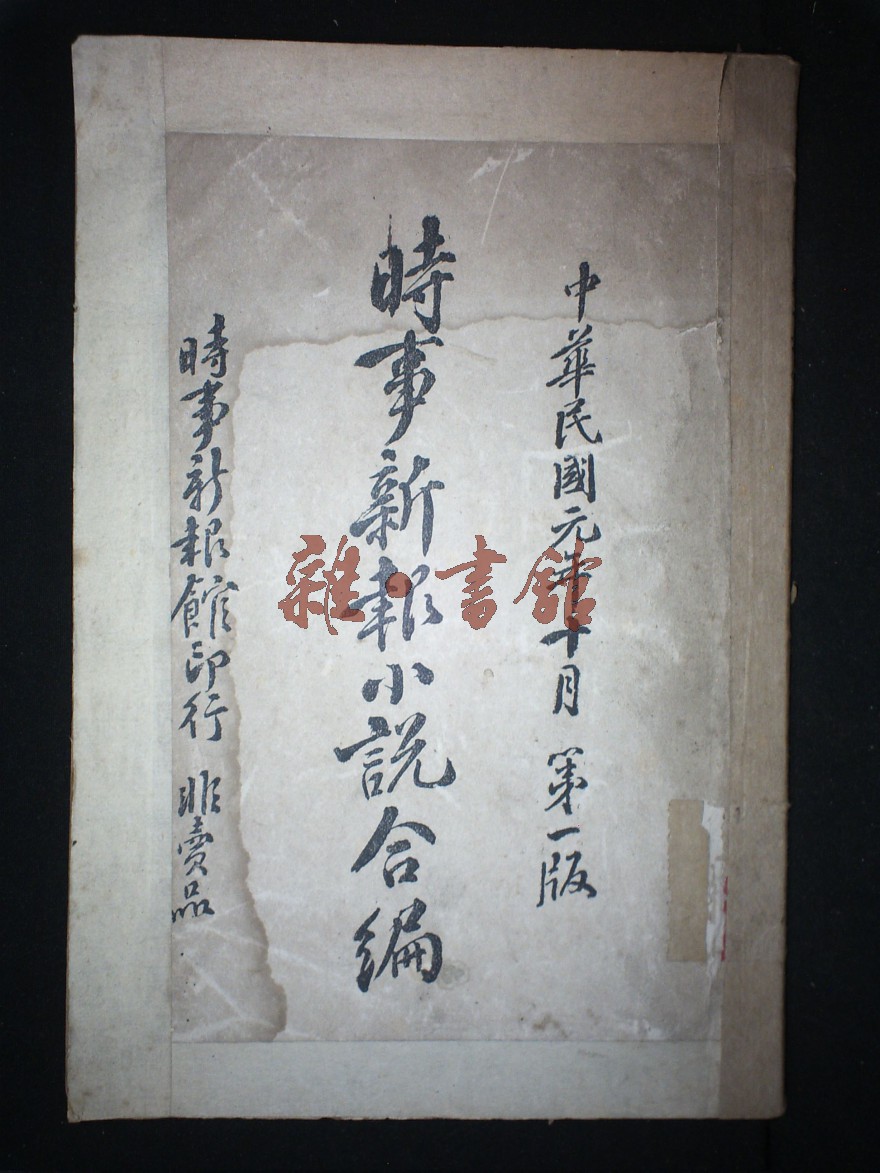 中華民國元年十月 第一版
時事新報小説合編
時事新報館印行 非賣品
雜·書館